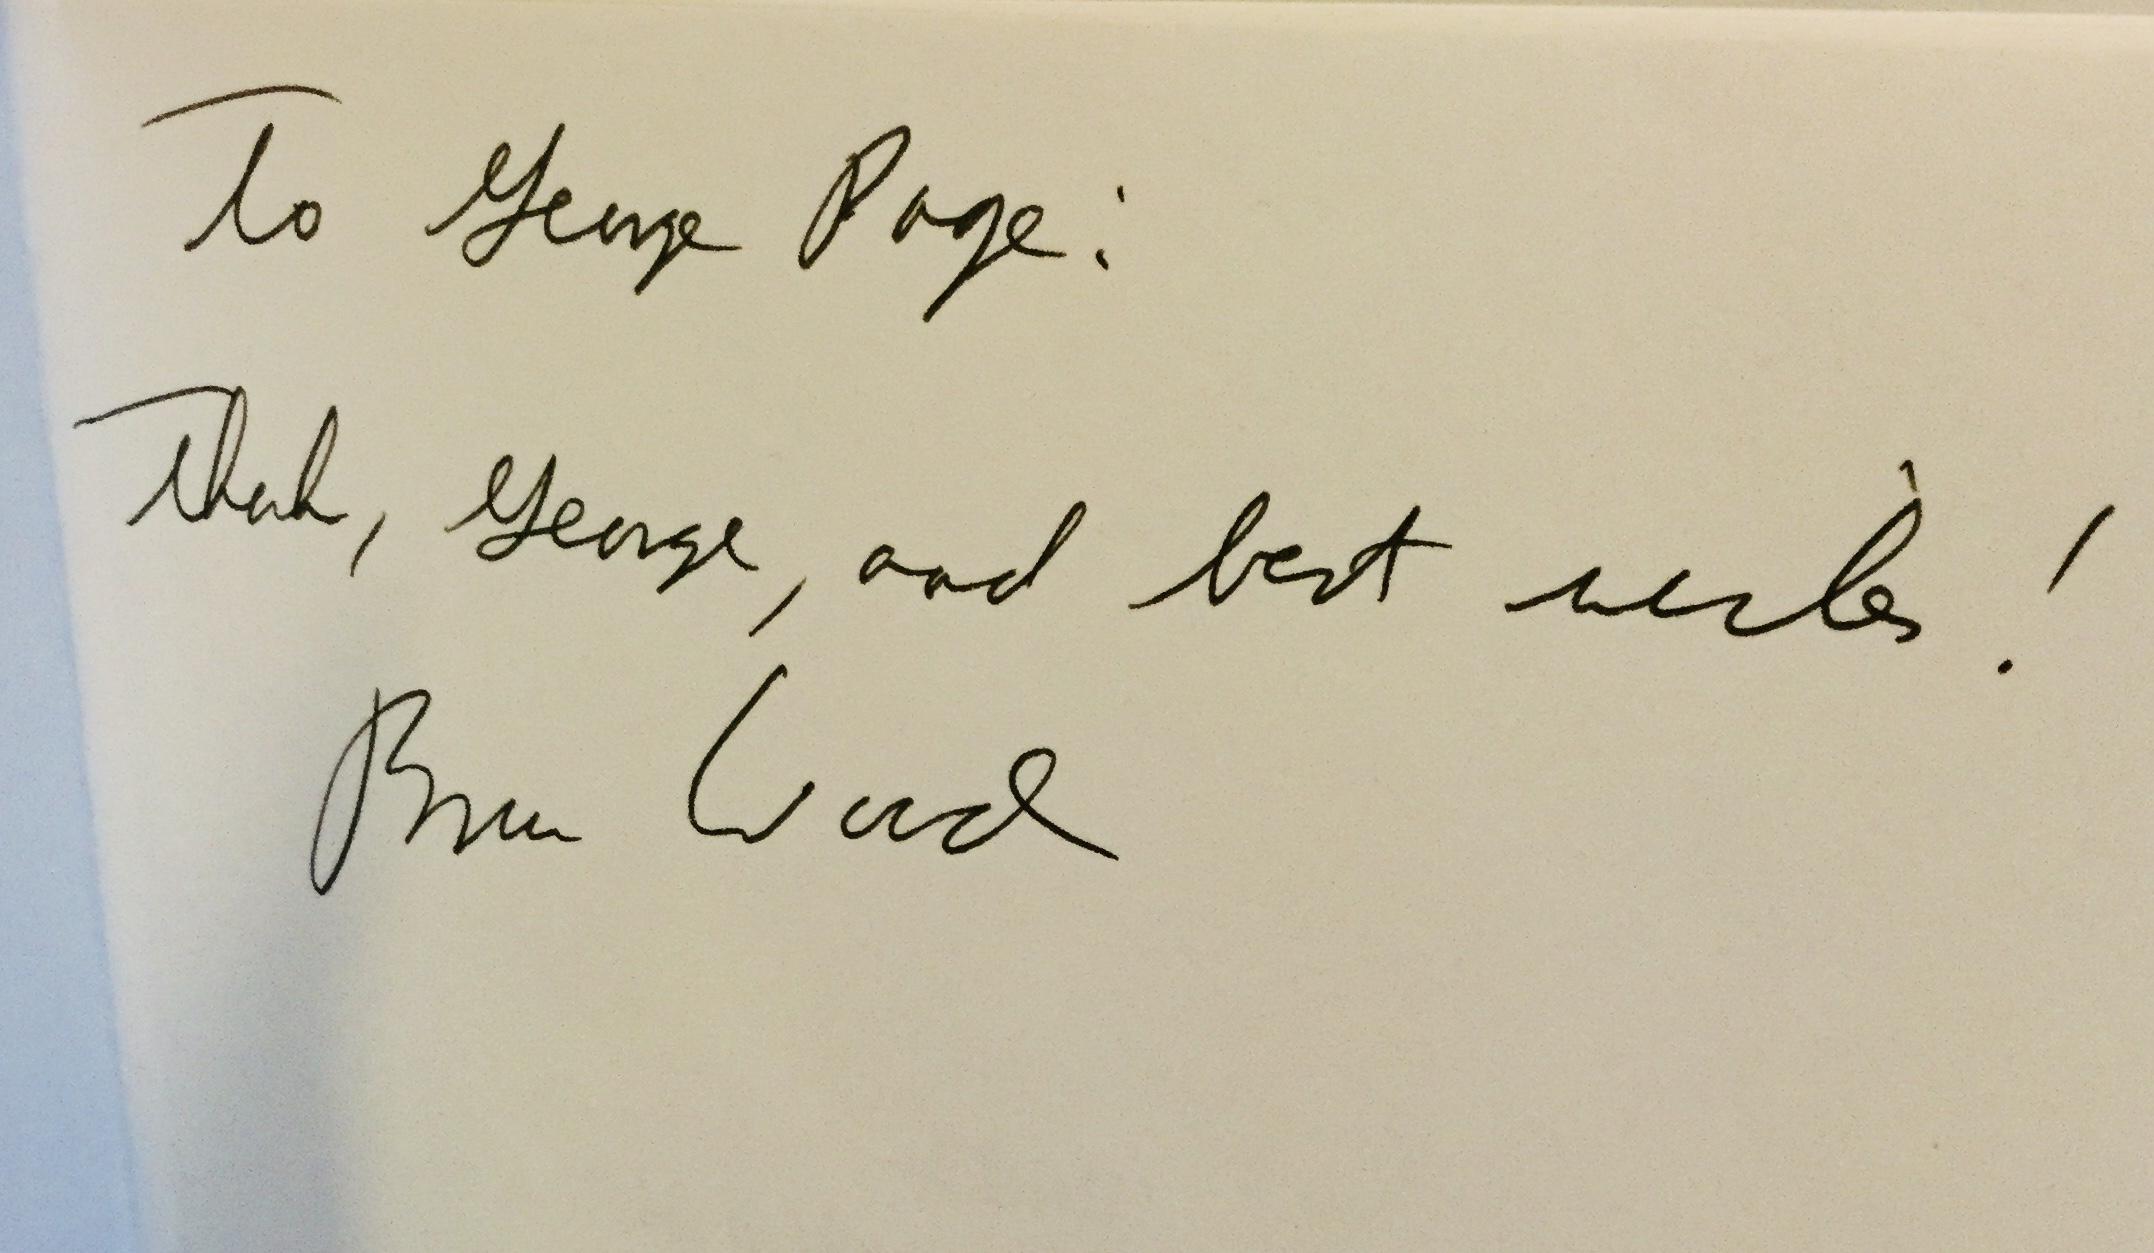 To George Page:
Thanks, George, and best wishes!
Wood